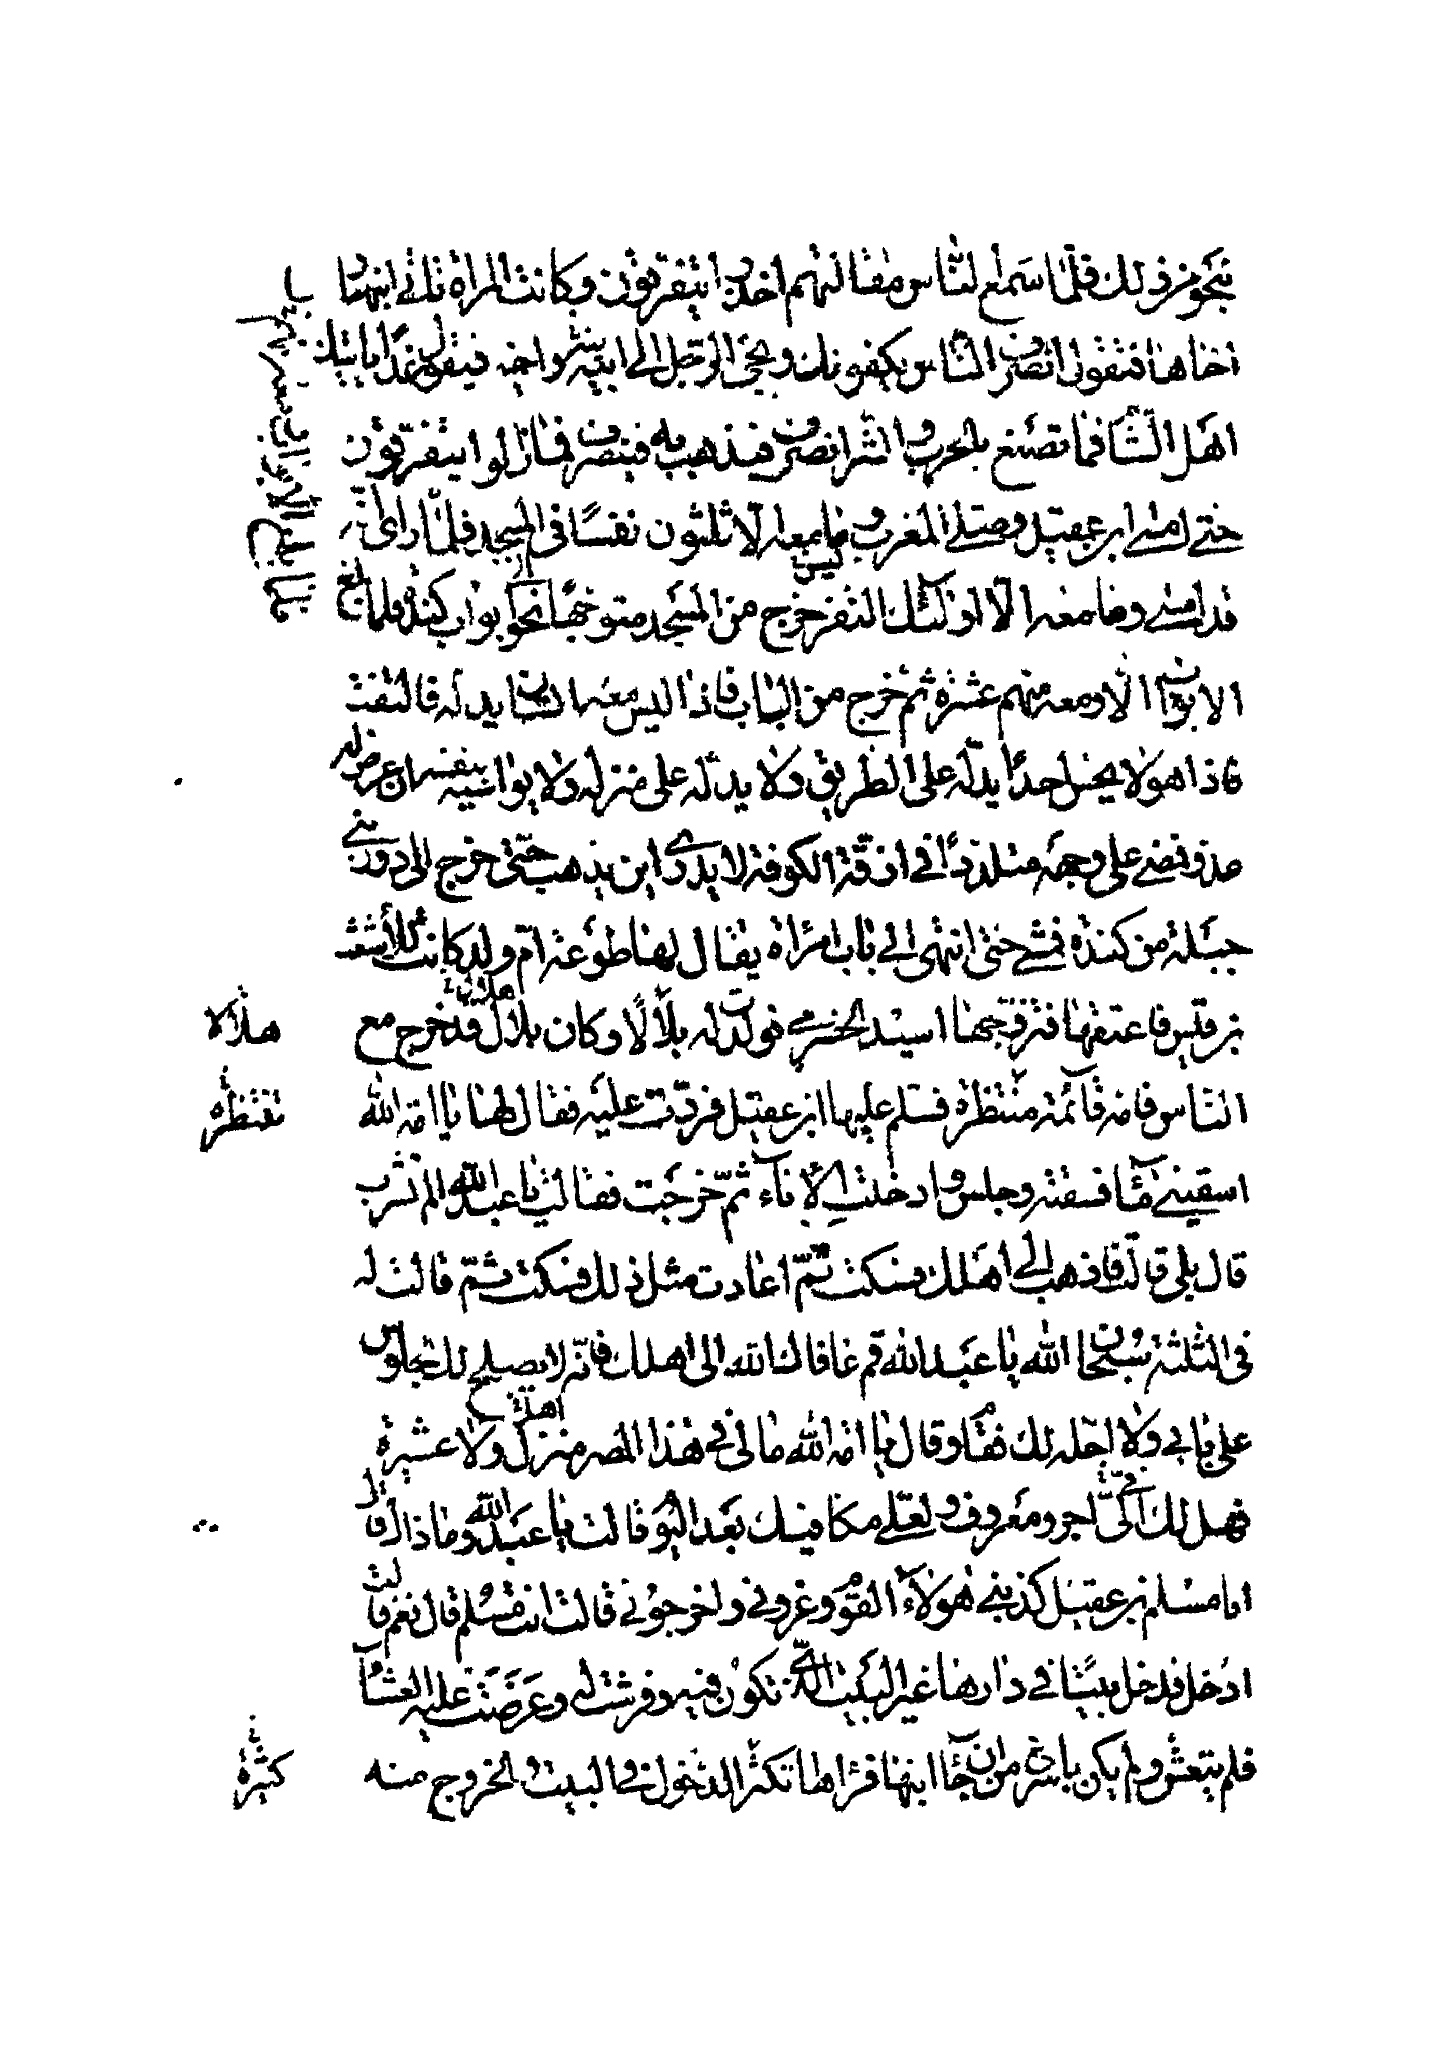 بنحو من ذلك فلما سمع الناس مقالتهم اخذوا يتفرقون وكانت المراة تاتي ابنها او
اخاها فتقول انصرف الناس يكفونك ويجئ الرجل الى ابنه واخيه فيقول غدا ياتيك
اهل الشام فما تصنع بالحرب والشر انصرف فيذهب به فينصرف فما زالوا يتفرقون
حتى امسى ابن عقيل وصلى المغرب وما معه الا ثلثون نفسا في المسجد فلما راى انه
قد امسى وما معه الا اولئك النفر خرج من المسجد متوجها نحو ابواب كندة فلما بلغ
الابواب الا ومعه منهم عشرة ثم خرج من الباب فاذا ليس معه انسان يدله فالتفت
فاذا هو لا يحس احدا يدله على الطريق ولا يدله على منزله ولا يواسيه بنفسه ان عرض له
عدو فمضى على وجهه متلددا في ازقة الكوفة لا يدري اين يذهب حتى خرج الى دور بني
جبلة من كندة فمشى حتى انتهى الى باب امراة يقال لها طوعة ام ولد كانت للاشعث
بن قيس فاعتقها فتزوجها اسيد الحضرمي فولدت له بلالا وكان بلال قد خرج مع
هلالا
الناس فامه قائمة منتظرة فسلم عليها ابن عقيل فردت عليه فقال لها يا امة الله
تنتظره
اسقيني ماء فسقته وجلس وادخلت الاناء ثم خرجت فقالت يا عبد الله الم تشرب
قال بلى قالت فاذهب الى اهلك فسكت ثم اعادت مثل ذلك فسكت ثم قالت له
في الثلثة سبحان الله يا عبد الله قم عافاك الله الى اهلك فانه لا يصلح لك الجلوس
على بابي ولا احله لك فقام وقال يا امة الله ما لي في هذا المصر منزل ولا عشيرة
فهل لك في اجر ومعروف ولعلي مكافيك بعد اليوم قالت يا عبد الله وما ذاك قال
انا مسلم بن عقيل كذبني هولاء القوم وغروني واخرجوني قالت انت مسلم قال نعم قالت
ادخل فدخل بيتا في دارها غير البيت الذي تكون فيه وفرشت له وعرضت عليه العشاء
فلم يتعش ولم يكن باسرع من ان جاء ابنها فراها تكثر الدخول في البيت والخروج منه
كثرة